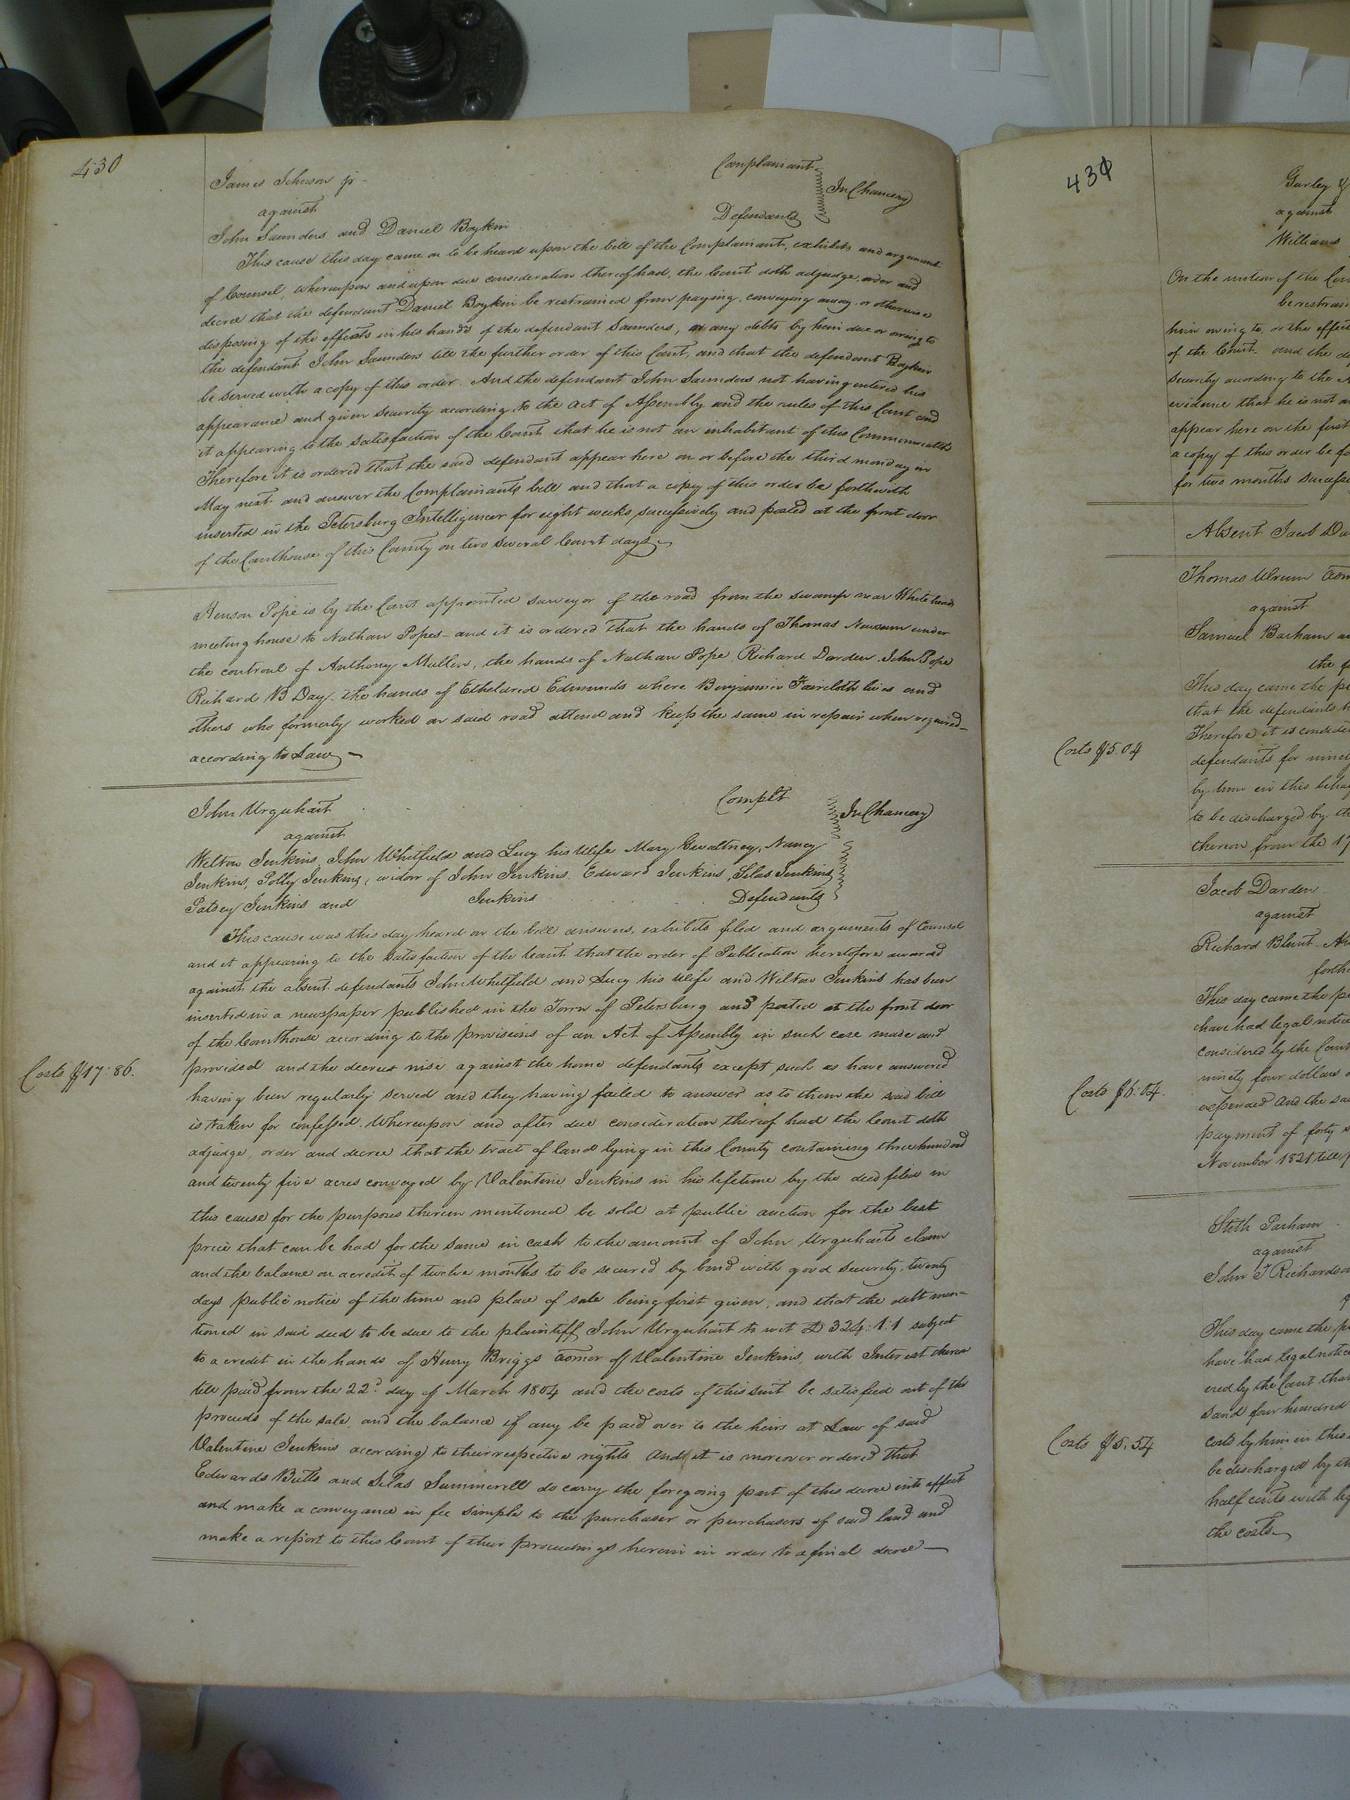 430
James Johnson jr. Complainant
against In Chancery
John Saunders and Daniel Boykin Defendants
This cause this day came on to be heard upon the bill of the Complainant, exhibits and argument
of Counsel, whereupon and upon due consideration thereof had, the Court doth adjudge, order and
decree that the defendant Daniel Boykin be restrained from paying, conveying away, or otherwise
disposing of the effects in his hands of the defendant Saunders, or any debts by him due or owing to
the defendant John Saunders till the further order of this Court, and that the defendant Boykin
be served with a copy of this order. And the defendant John Saunders not having entered his
appearance and given security according to the act of Assembly and the rules of this Court and
it appearing to the satisfaction of the Court that he is not an inhabitant of this Commonwealth
Therefore it is ordered that the said defendant appear here on or before the third monday in
May next and answer the Complainants bill and that a copy of this order be forthwith
inserted in the Petersburg Intelligencer for eight weeks successively and posted at the front door
of the Courthouse of this County on two several Court days
Henson Pope is by the Court appointed surveyor of the road from the swamp near Whitehead
meeting house to Nathan Popes and it is ordered that the hands of Thomas Newsum under
the controul of Anthony Mullen, the hands of Nathan Pope Richard Darden John Pope
Richard B Day, the hands of Etheldred Edmunds where Benjamin Faircloth lives and
others who formerly worked on said road attend and keep the same in repair when required
according to Law
John Urquhart Complt
against In Chancery
Welton Jenkins, John Whitfield and Lucy his Wife Mary Gwaltney, Nancy
Jenkins, Polly Jenkins, widow of John Jenkins, Edward Jenkins, Silas Jenkins,
Patsey Jenkins and Jenkins Defendants
This cause was this day heard on the bill answers, exhibits filed and arguments of Counsel
and it appearing to the satisfaction of the Court that the order of Publication heretofore awarded
against the absent defendants John Whitfield and Lucy his Wife and Welton Jenkins has been
inserted in a newspaper published in the Town of Petersburg and posted at the front door
of the Courthouse according to the provisions of an Act of Assembly in such case made and
Costs $17:86. provided and the decree nisi against the home defendants except such as have answered
having been regularly served and they having failed to answer as to them the said bill
is taken for confessed. Whereupon and after due consideration thereof had the Court doth
adjudge, order and decree that the tract of land lying in this County containing three hundred
and twenty five acres conveyed by Valentine Jenkins in his lifetime by the deed filed in
this cause for the purposes therein mentioned be sold at public auction for the best
price that can be had for the same in cash to the amount of John Urquharts claim
and the balance on a credit of twelve months to be secured by bond with good security, twenty
days public notice of the time and place of sale being first given, and that the debt men-
tioned in said deed to be due to the plaintiff John Urquhart to wit £324:1:1 subject
to a credit in the hands of Henry Briggs admor of Valentine Jenkins, with Interest thereon
till paid from the 22d day of March 1804 and the costs of this suit be satisfied out of the
proceeds of the sale and the balance if any be paid over to the heirs at Law of said
Valentine Jenkins according to their respective rights And it is moreover ordered that
Edwards Butts and Silas Summerell do carry the foregoing part of this decree into effect
and make a conveyance in fee simple to the purchaser or purchasers of said land and
make a report to this Court of their proceedings herein in order to a final decree
431
Gurley &
against
Williams
On the motion of the Com
be restrain
him owing to, or the effec
of the Court. and the d
security according to the A
evidence that he is not a
appear here on the first
a copy of this order be fo
for two months success
Absent Jacob Da
Thomas Urum
against
Samuel Barham
the f
This day came the p
that the defendants
Therefore it is conside
Costs $5.04 defendants for nine
by him in this behalf
to be discharged by the
thereon from the 17
Jacob Darden
against
Richard Blunt
forth
This day came the p
have had legal notice
considered by the Court
Costs $5:04. ninety four dollars
expended And the sa
payment of forty
November 1821 till p
Stith Parham
against
John T Richardson
This day came the p
have had legal notice
ered by the Court that
sand four hundred
Costs $5:54 costs by him in this
be discharged by th
half cents with leg
the costs